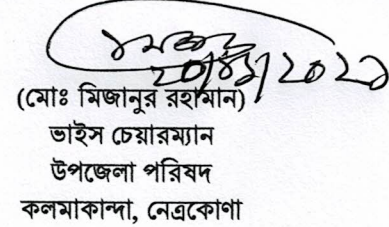 (মোঃ মিজানুর রহামান)
ভাইস চেয়ারম্যান
উপজেলা পরিষদ
কলমাকান্দা, নেত্রকোণা